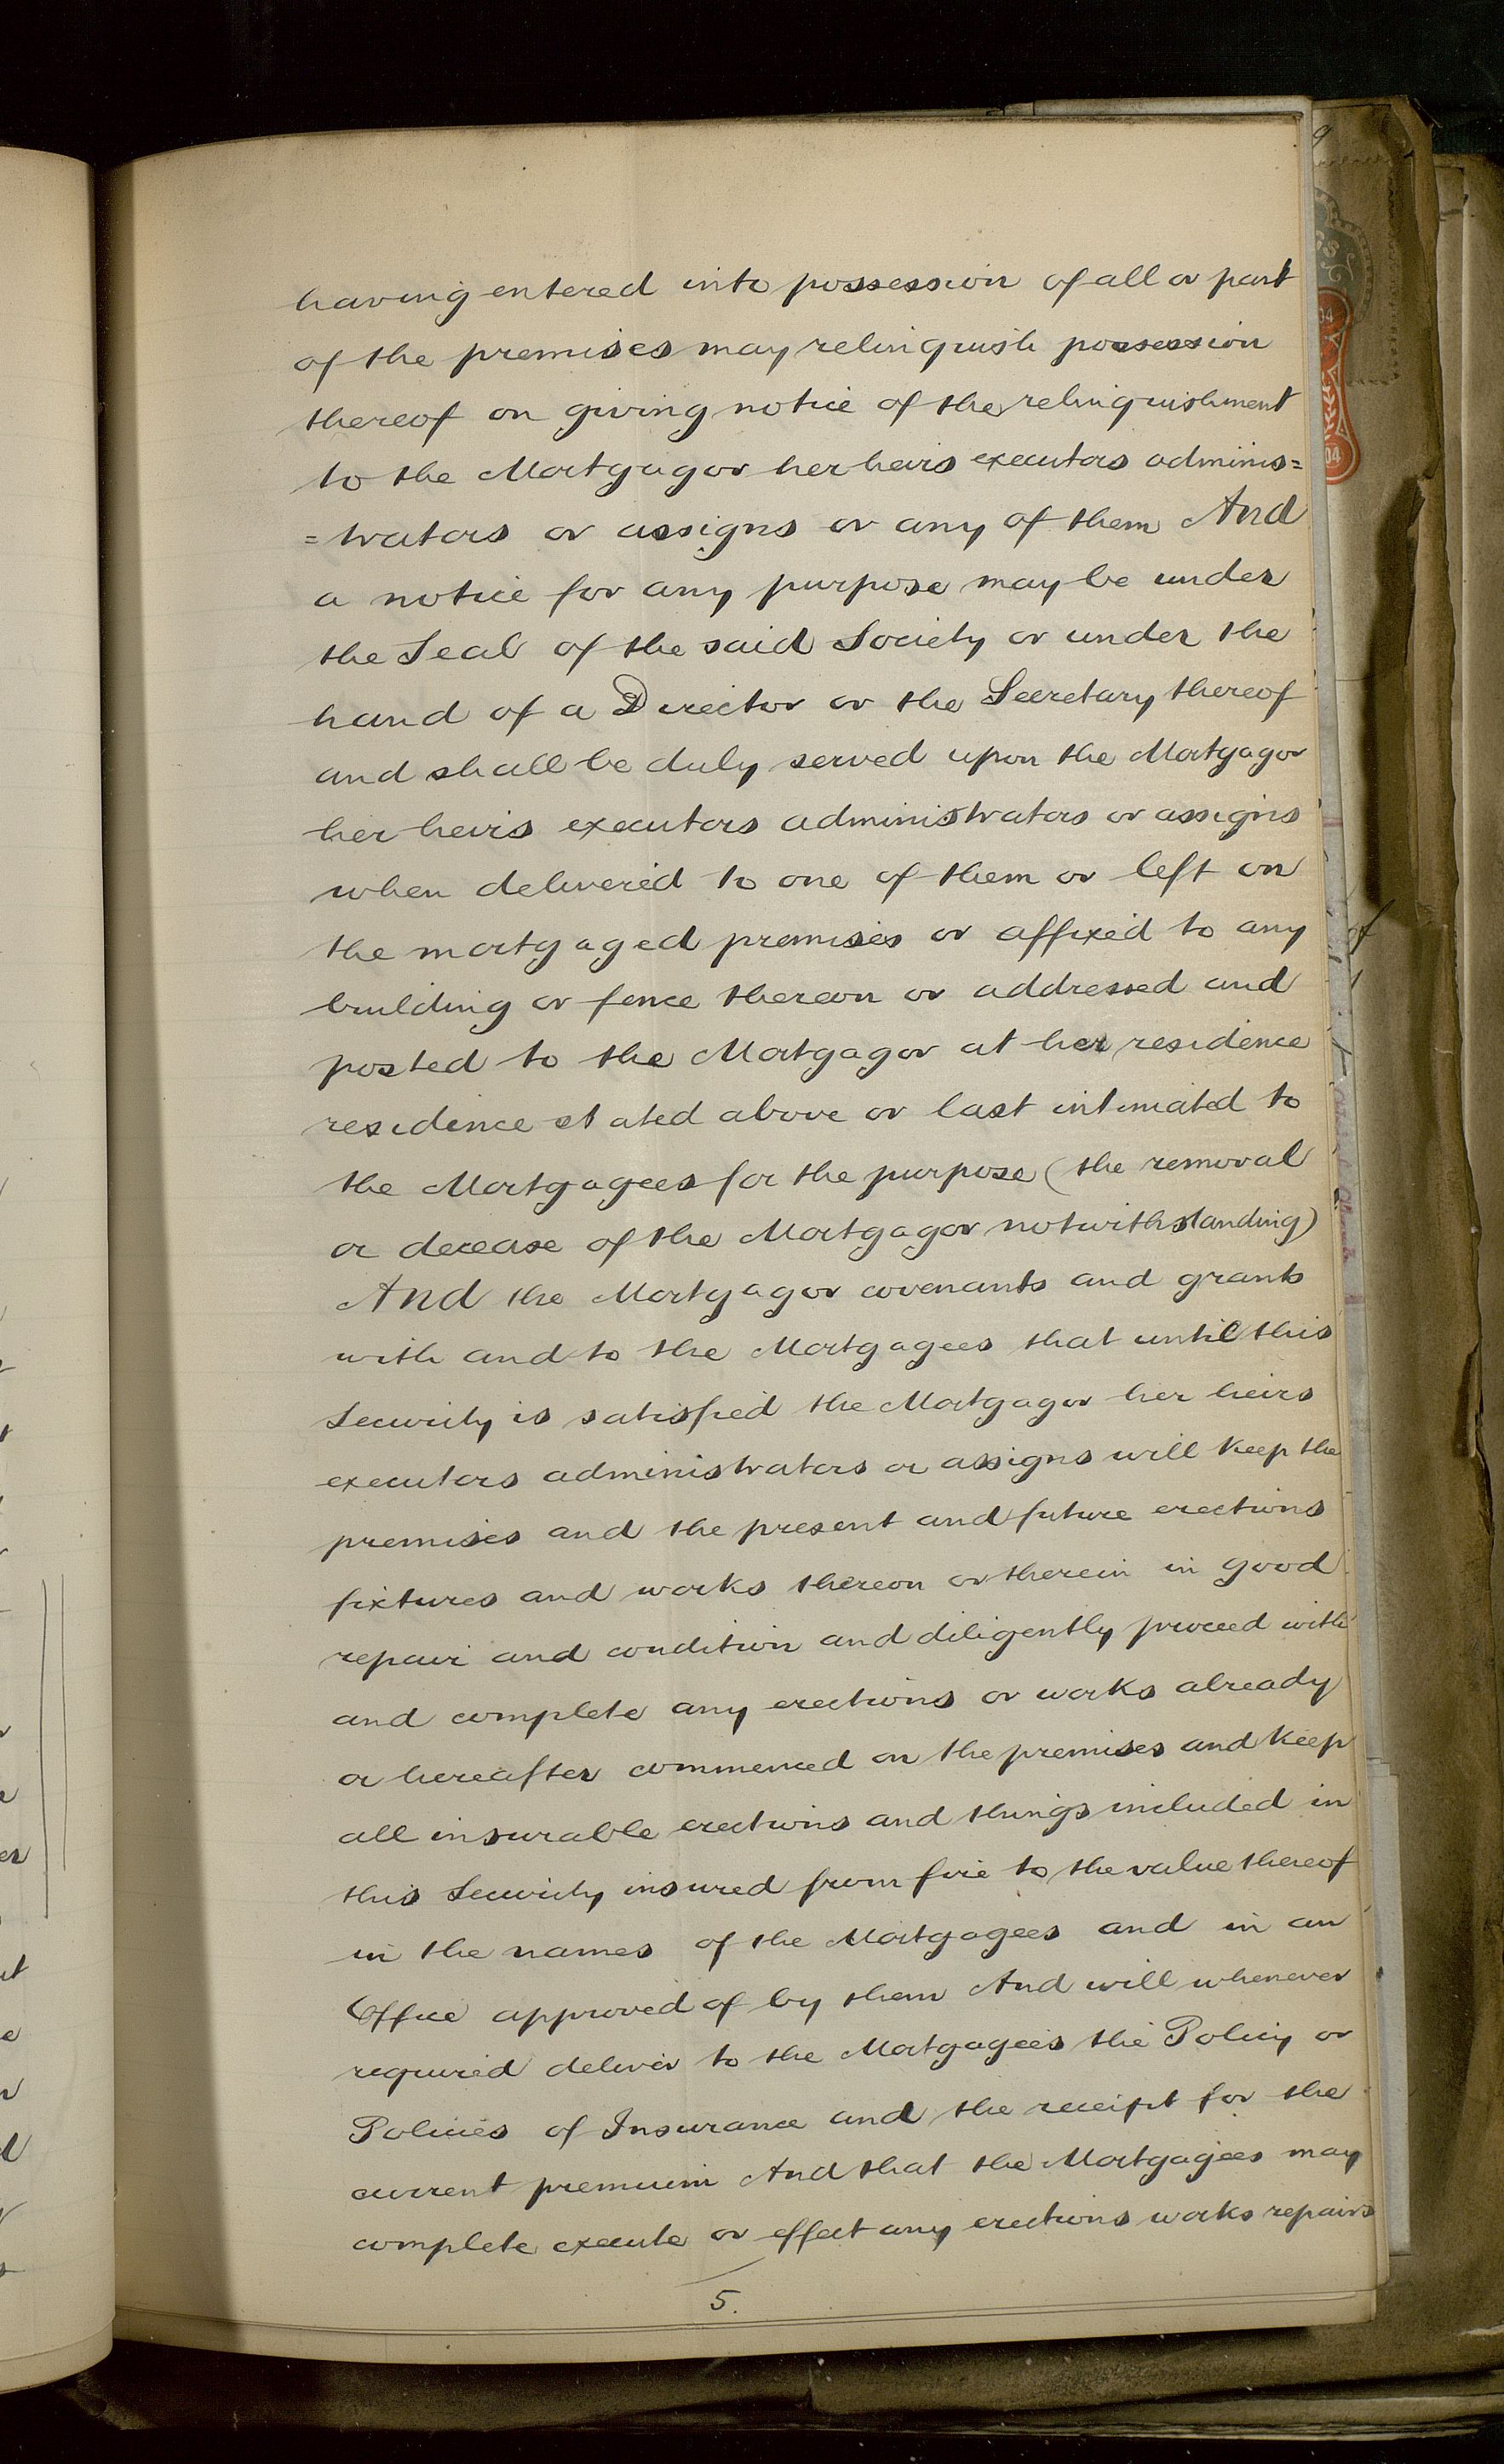 having entered into possession of all or part
of the premises may relinquish possession
thereof on giving notice of the relinquishment
to the Mortgagor her heirs executors adminis=
=trators or assigns or any of them And
a notice for any purpose may be under
the Seal of the said Society or under the
hand of a Director or the Secretary thereof
and shall be duly served upon the Mortgagor
her heirs executors administrators or assigns
when delivered to one of them or left on
the mortgaged premises or affixed to any
building or fence thereon or addressed and
posted to the Mortgagor at her residence
residence stated above or last intimated to
the Mortgagees for the purpose (the removal
or decease of the Mortgagor notwithstanding)
And the Mortgagor covenants and grants
with and to the Mortgagees that until this
Security is satisfied the Mortgagor her heirs
executors administrators or assigns will keep the
premises and the present and future erections
fixtures and works thereon or therein in good
repair and condition and diligently proceed with
and complete any erections or works already
or hereafter commenced on the premises and keep
all insurable erections and things included in
this Security insured from fire to the value thereof
in the names of the Mortgagees and in an
Office approved of by them And will whenever
required deliver to the Mortgagees the Policy or
Policies of Insurance and the receipt for the
current premium And that the Mortgagees may
complete execute or effect any erections works repairs
5.
of
04